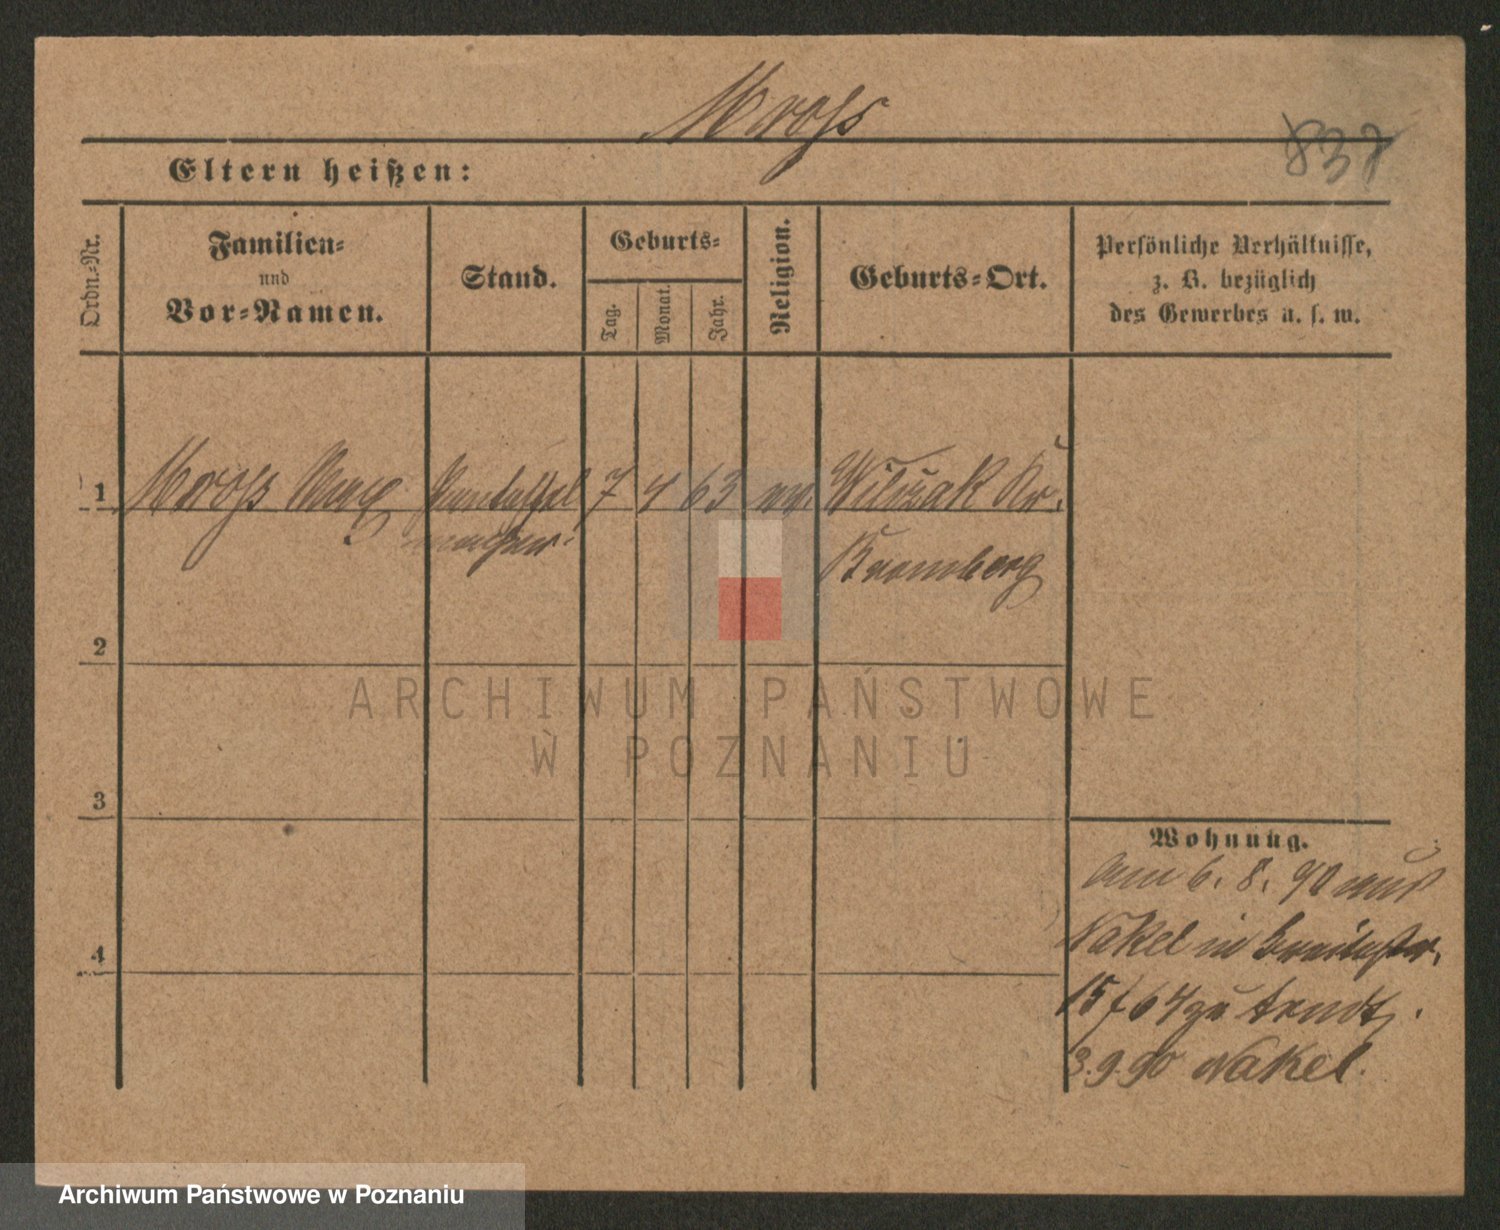 Mroß
838
Eltern heißen:
Ordn.-Nr.
Familien-
und
Vor-Namen.
Stand.
Geburts-
Tag.
Monat.
Jahr.
Religion.
Geburts-Ort.
Persönliche Verhältnisse,
z. B. bezüglich
des Gewerbes u. s. w.
1 Mroß Max Pantoffel 7 4 63 ev. Wilczak Kr.
macher. Bromberg
2
3
4
Wohnung.
Am 6. 8. 90 aus
Nakel in Breitestr.
15/64 zu Arndt.
3.9.90 Nakel.
ARCHIWUM PAŃSTWOWE
W POZNANIU
Archiwum Państwowe w Poznaniu